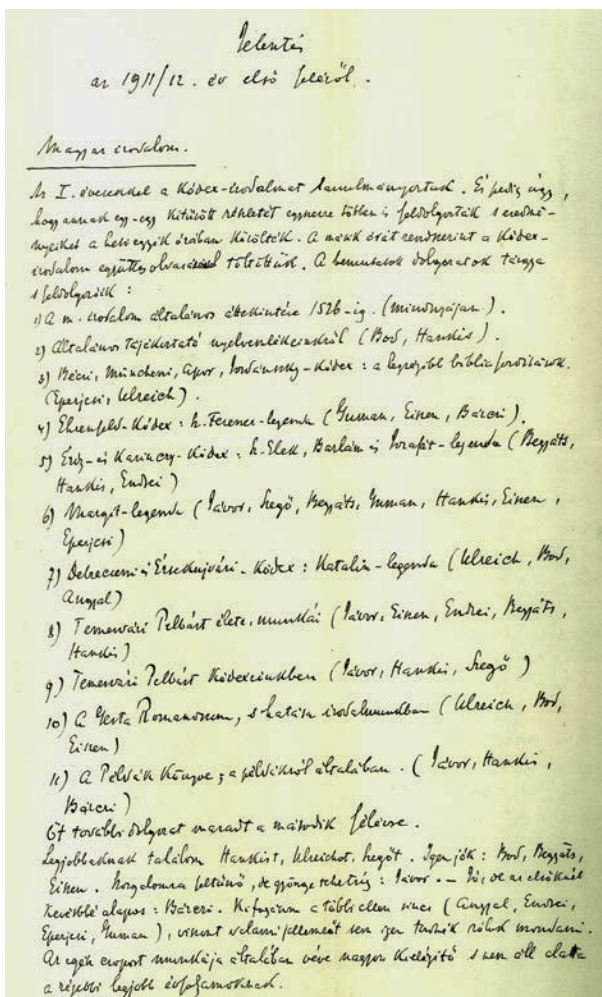 Jelentés
az 1911/12. év első feléről.
Magyar irodalom.
Az I. évesekkel a Kódex-irodalmat tanulmányoztuk. És pedig úgy,
hogy annak egy-egy kitűzött részletét egyszerre többen is feldolgozták s eredmé-
nyeiket a heti egyik órában közölték. A másik órát rendszerint a Kódex-
irodalom együttes olvasásával töltöttük. A bemutatott dolgozatok tárgya
s feldolgozóik :
1) A m. irodalom általános áttekintése 1526-ig. (Mindnyájan).
2) Általános tájékoztató nyelvemlékeinkről (Bod, Hankis).
3) Bécsi, Müncheni, Apor, Jordánszky-Kódex : a legrégibb bibliafordítások.
(Eperjesi, Ulreich).
4) Ehrenfeld-Kódex : Sz. Ferenc-legenda (Guman, Eisen, Bárczi).
5) Érdy- és Kazinczy-Kódex : Sz. Elek, Barlám és Jozafát-legenda (Begyáts,
Hankis, Endrei)
6) Margit-legenda (Jávor, Szegő, Begyáts, Guman, Hankis, Eisen,
Eperjesi)
7) Debreceni és Érsekujvári-Kódex : Katalin-legenda (Ulreich, Bod,
Angyal)
8) Temesvári Pelbárt élete, munkái (Jávor, Eisen, Endrei, Begyáts,
Hankis)
9) Temesvári Pelbárt Kódexeinkben (Jávor, Hankis, Szegő)
10) A Gesta Romanorum, s hatása irodalmunkban (Ulreich, Bod,
Eisen)
11) A Példák Könyve ; a példákról általában. (Jávor, Hankis,
Bárczi)
Öt további dolgozat maradt a második félévre.
Legjobbaknak találom Hankist, Ulreichot, Szegőt. Igen jók : Bod, Begyáts,
Eisen. Szorgalomra feltünő, de gyönge tehetség : Jávor. — Jó, de az elsőknél
kevésbbé alapos : Bárczi. Kifogásom a többi ellen sincs (Angyal, Endrei,
Eperjesi, Guman), viszont valami jellemzőt sem igen tudnék róluk mondani.
Az egész csoport munkája általában véve nagyon kielégitő s nem áll alatta
a régebbi legjobb évfolyamoknak.